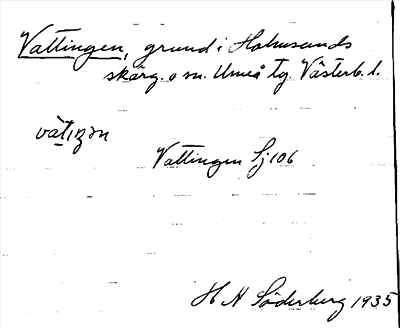 Vattingen, grund i Holmsunds
skärg. o sn. Umeå tg. Västerb. l.
vàtıŋən
Vattingen Sj 106
H N Söderberg 1935